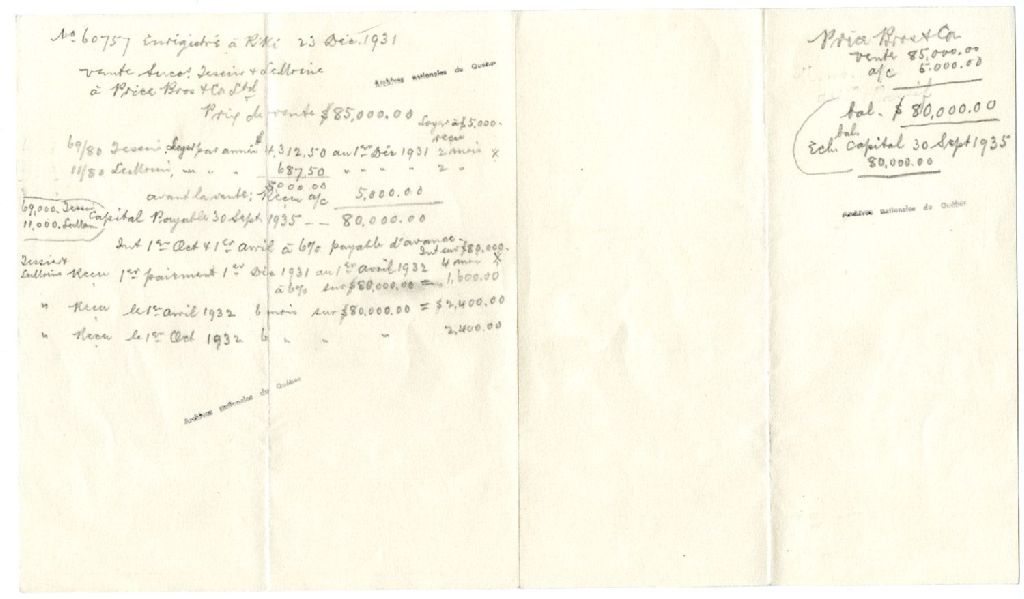 No 60757 Enrigistré à Rki 23 Déc. 1931
vente Succ. Tessier & LeMoine
à Price Bros & Co Ltd
Prix de vente $85,000.00
Loyer à $5,000-
reçu
69/80 Tessier Loyer par année $4,312.50 au 1er Déc 1931 2 mois x
11/80 LeMoine, " " " 687.50 " " " " 2 "
5000.00
avant la vente: Reçu a/c 5,000.00
69,000. Tessier
11,000. LeMoine
Capital Payable 30 Sept 1935 -- 80,000.00
Int 1er Oct & 1er Avril à 6% payable d'avance.
Int sur $80,000.-
Tessier & LeMoine Reçu 1er paiement 1er Déc 1931 au 1er avril 1932 4 mois x
à 6% sur $80,000.00 = 1,600.00
" Reçu le 1er Avril 1932 6 mois sur $80,000.00 = $2,400.00
" Reçu le 1er Oct 1932 6 " " " 2,400.00
Archives nationales du Québec
Archives nationales du Québec
Price Bros & Co
vente 85,000.00
a/c 5.000.00
bal. $80,000.00
bal.
Éch. Capital 30 Sept 1935
80,000.00
Archives nationales du Québec